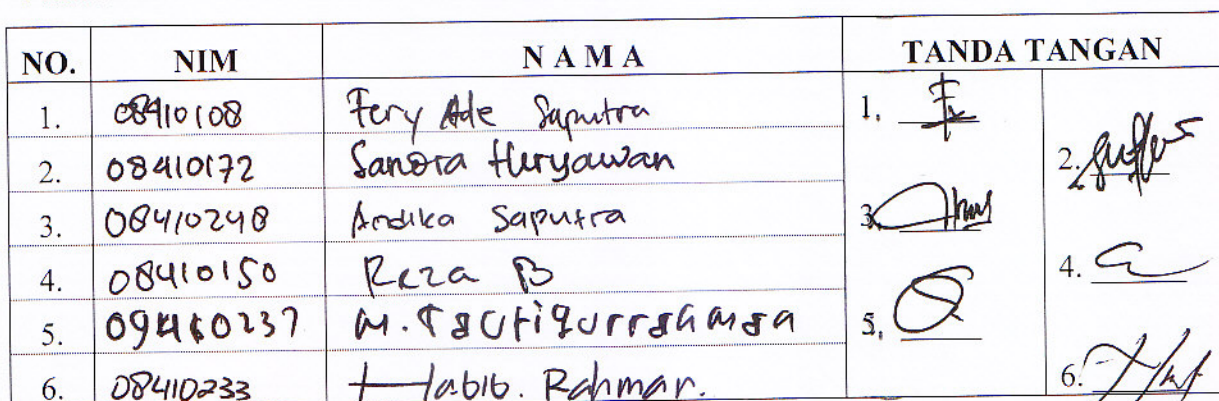 NO. NIM N A M A TANDA TANGAN
1. 08410108 Fery Ade Saputra 1.
2. 08410172 Sandra Heryawan 2.
3. 08410248 Andika Saputra 3.
4. 08410150 Reza B 4.
5. 09410237 M. Taufiqurrahman 5.
6. 08410233 Habib. Rahmar. 6.